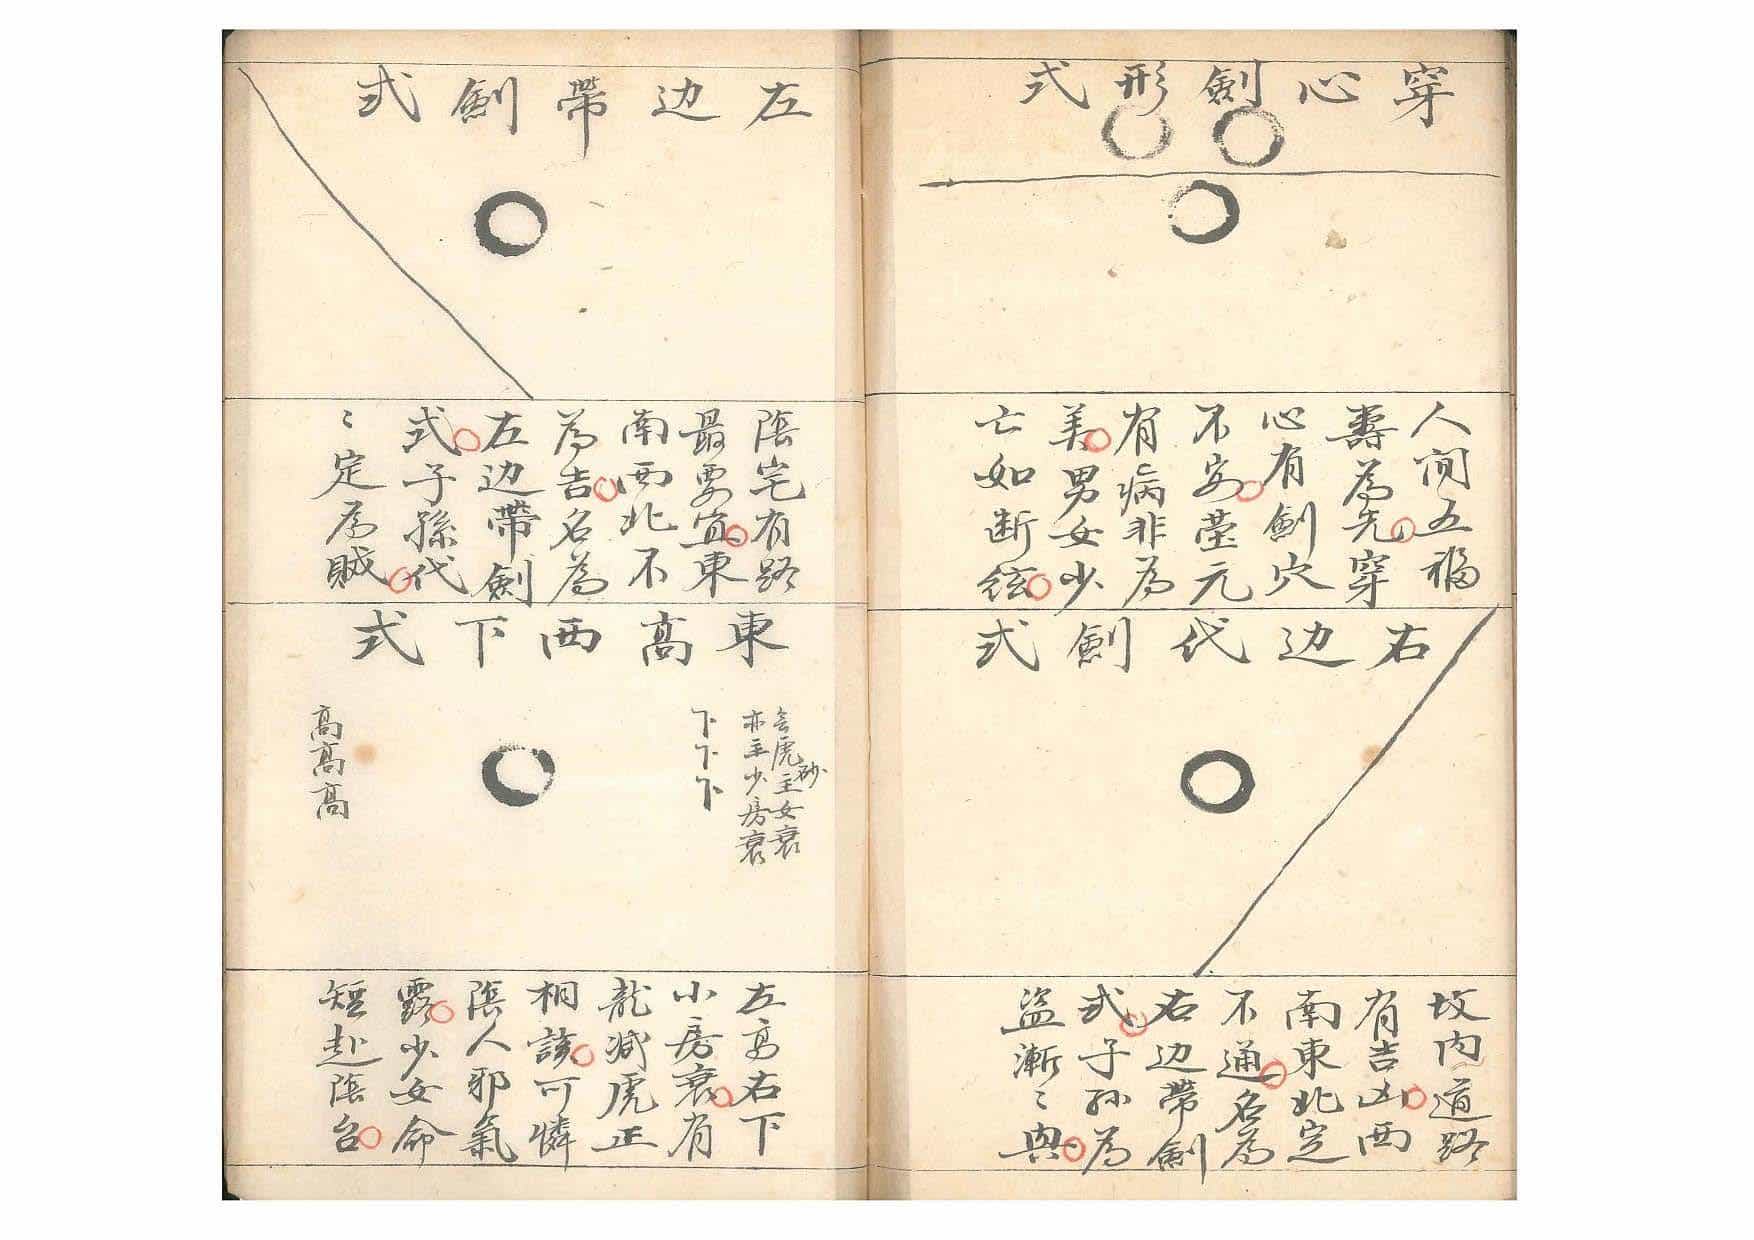 穿心劍形式
人间五福
壽為先穿
心有劍穴
不安塋元
有病非為
美男女少
亡如断絃
右边代劍式
坟内道路
有吉凶西
南東北定
不通名為
右边帶劍
式子孙為
盗漸〻與
左边帶劍式
陰宅有路
最要宜東
南西北不
為吉名為
左边帶劍
式子孫代
〻定為賊
東高西下式
虎砂主女衰
亦主少房衰
下下下
高高高
左高右下
小房衰有
龍減虎正
相該可憐
陰人邪氣
露少女命
短赴陰台